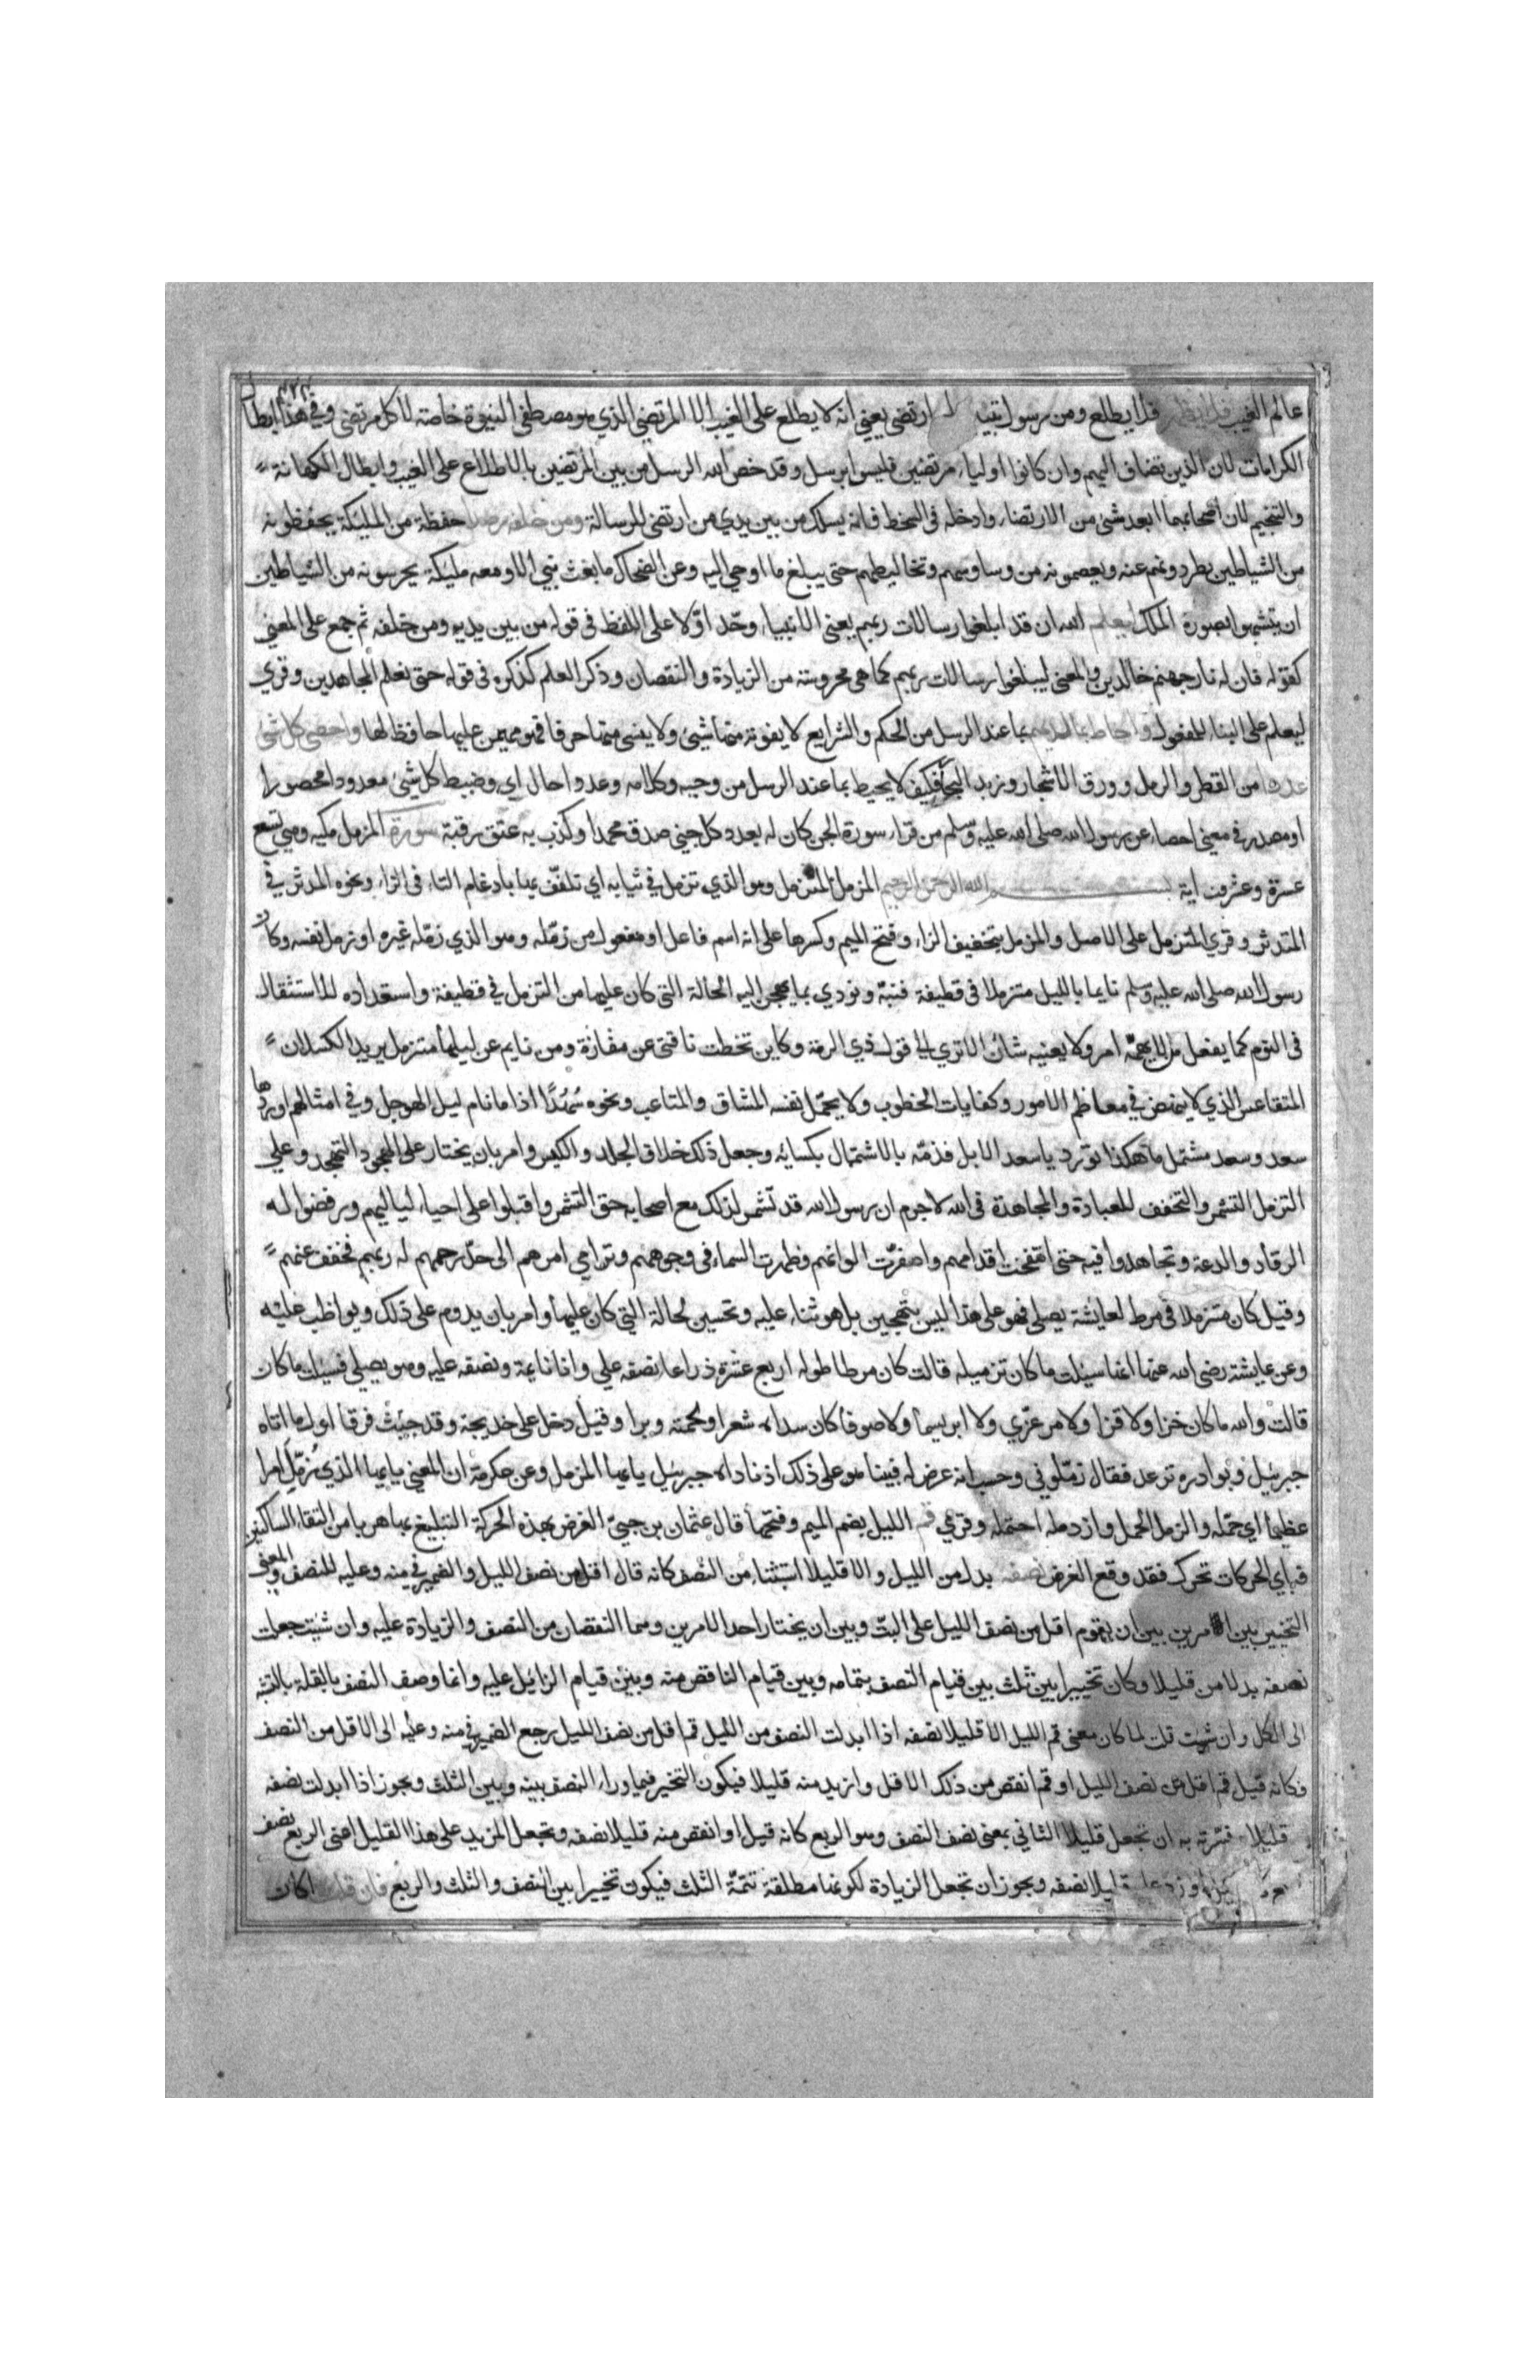 عالم الغيب فلا يظهر فلا يطلع ومن رسول تبيين لمن ارتضى يعني انه لا يطلع على الغيب الا المرتضى الذي هو مصطفى للنبوة خاصة لا كل مرتضى وفي هذا ابطال
الكرامات لان الذين تضاف اليهم وان كانوا اولياء مرتضين فليسوا برسل وقد خص الله الرسل من بين المرتضين بالاطلاع على الغيب وابطال الكهانة
والتنجيم لان اصحابهما ابعد شئ من الارتضاء وادخله في السخط فانه يسلك من بين يدي من ارتضى للرسالة ومن خلفه رصدا حفظة من المليكة يحفظونه
من الشياطين يطردونهم عنه ويعصمونه من وساوسهم وتخاليطهم حتى يبلغ ما اوحي اليه وعن الضحاك ما بعث نبي الا ومعه مليكة يحرسونه من الشياطين
ان يتشبهوا بصورة الملك ليعلم الله ان قد ابلغوا رسالات ربهم يعني الانبياء وحّد اوّلا على اللفظ في قوله من بين يديه ومن خلفه ثم جمع على المعنى
كقوله فان له نار جهنم خالدين والمعنى ليبلغوا رسالات ربهم كما هي محروسة من الزيادة والنقصان وذكر العلم كذكره في قوله حتى نعلم المجاهدين وقري
ليعلم على البناء للمفعول واحاط بما لديهم بما عند الرسل من الحكم والشرايع لا يفوته منها شيئ ولا ينسى منها حرفا فهو مهيمن عليها حافظ لها واحصى كل شئ
عددا من القطر والرمل وورق الاشجار وزبد البحار فكيف لا يحيط بما عند الرسل من وحيه وكلامه وعددا حال اي وضبط كل شيئ معدودا محصورا
او مصدر في معنى احصاء عن رسول الله صلى الله عليه وسلم من قراء سورة الجن كان له بعدد كل جني صدق محمدا وكذب به عتق رقبة سورة المزمل مكيه وهي تسع
عشرة وعشرون اية بسم الله الرحمن الرحيم المزمل المتزمل وهو الذي تزمل في ثيابه اي تلفّف بها بادغام التاء في الزاء ونحوه المدثر في
المتدثر وقري المتزمل على الاصل والمزمل بتخفيف الزاء وفتح الميم وكسرها على انه اسم فاعل او مفعول من زمّله وهو الذي زمّله غيره او زمل نفسه وكان
رسول الله صلى الله عليه وسلم نايما بالليل متزملا في قطيفة فنبّه ونودي بما يهجن اليه الحالة التي كان عليها من التزمل في قطيفة واستعداده للاستثقال
في النوم كما يفعل من لا يهمّه امر ولا يعنيه شان الا تري الى قول ذي الرمة وكاين تخطت ناقتي عن مفازة ومن نايم عن ليلها متزمل يريد الكسلان
المتقاعس الذي لا ينهض في معاظم الامور وكفايات الخطوب ولا يحمّل نفسه المشاق والمتاعب ونحوه سُهُدًا اذا ما نام ليل الهوجل وفي امثالهم اوردها
سعد وسعد مشتمل ما هكذا تورد يا سعد الابل فذمّه بالاشتمال بكسائه وجعل ذلك خلاف الجلد والكيس وامر بان يختار على الهجود التهجد وعلى
التزمل التشمر والتخفف للعبادة والمجاهدة في الله لا جرم ان رسول الله قد تشمر لذلك مع اصحابه حق التشمر واقبلوا على احياء لياليهم ورفضوا له
الرقاد والدعة وتجاهدوا فيه حتى انتفخت اقدامهم واصفرّت الوانهم وظهرت السماء في وجوههم وترامي امرهم الى حدّ رحمهم له ربهم فخفف عنهم
وقيل كان متزملا في مرط لعايشة يصلي فهو على هذا ليس بتهجين بل هو ثناء عليه وتحسين لحالة التي كان عليها وامر بان يدوم على ذلك ويواظب عليه
وعن عايشة رضي الله عنها انها سيلت ما كان تزميله قالت كان مرطا طوله اربع عشرة ذراعا نصفه علي وانا نايمة ونصفه عليه وهو يصلي فسيلت ما كان
قالت والله ما كان خزا ولا قزا ولا مرعزي ولا ابريسما ولا صوفا كان سداه شعرا ولحمته وبرا وقيل دخل على خديجة وقد جيث فرقا اول ما اتاه
جبرئيل وبوادره ترعد فقال زمّلوني وحسب انه عرض له فبينا هو على ذلك اذ ناداه جبرئيل يا يها المزمل وعن عكرمة ان المعنى يا يها الذي زُمّل امرا
عظيما اي حمّله والزمل الحمل وازدمله احتمله وقري قم الليل بضم الميم وفتحها قال عثمان بن جنيّ الغرض بهذه الحركة التبليغ بها هربا من التقاء الساكنين
فباي الحركات تحرك فقد وقع الغرض نصفه بدل من الليل والا قليلا استثناء من النصف كانه قال اقل من نصف الليل والضمير في منه وعليه للنصف والمعنى
التخيير بين امرين بين ان يقوم اقل من نصف الليل على البتّ وبين ان يختار احد الامرين وهما النقصان من النصف والزيادة عليه وان شيت جعلت
نصفه بدلا من قليلا وكان تخييرا بين ثلث بين قيام النصف بتمامه وبين قيام الناقص منه وبين قيام الزايد عليه وانما وصف النصف بالقلة بالنسبة
الى الكل وان شيت قلت لما كان معنى قم الليل الا قليلا نصفه اذا ابدلت النصف من الليل قم اقل من نصف الليل رجع الضمير في منه وعليه الى الاقل من النصف
فكانه قيل قم اقل من نصف الليل او قم انقص من ذلك الاقل وازيد منه قليلا فيكون التخير فيما وراء النصف بينه وبين الثلث ويجوز اذا ابدلت نصفه
قليلا وفسّرته به ان تجعل قليلا الثاني بمعنى نصف النصف وهو الربع كانه قيل او انقص منه قليلا نصفه وتجعل المزيد على هذا القليل اعني الربع نصف
قليلا نصفه ويجوز ان تجعل الزيادة لكونها مطلقة تتمّة الثلث فيكون تخييرا بين النصف والثلث والربع فان قلت اكان